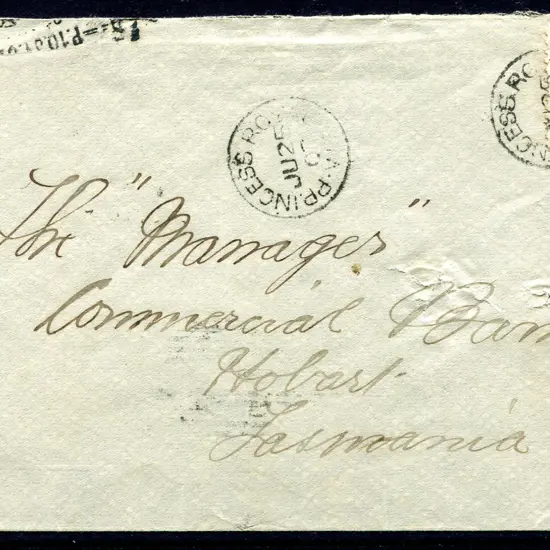 PRINCESS RO
JU 25
The "Manager"
Commercial Ban
Hobart
Tasmania